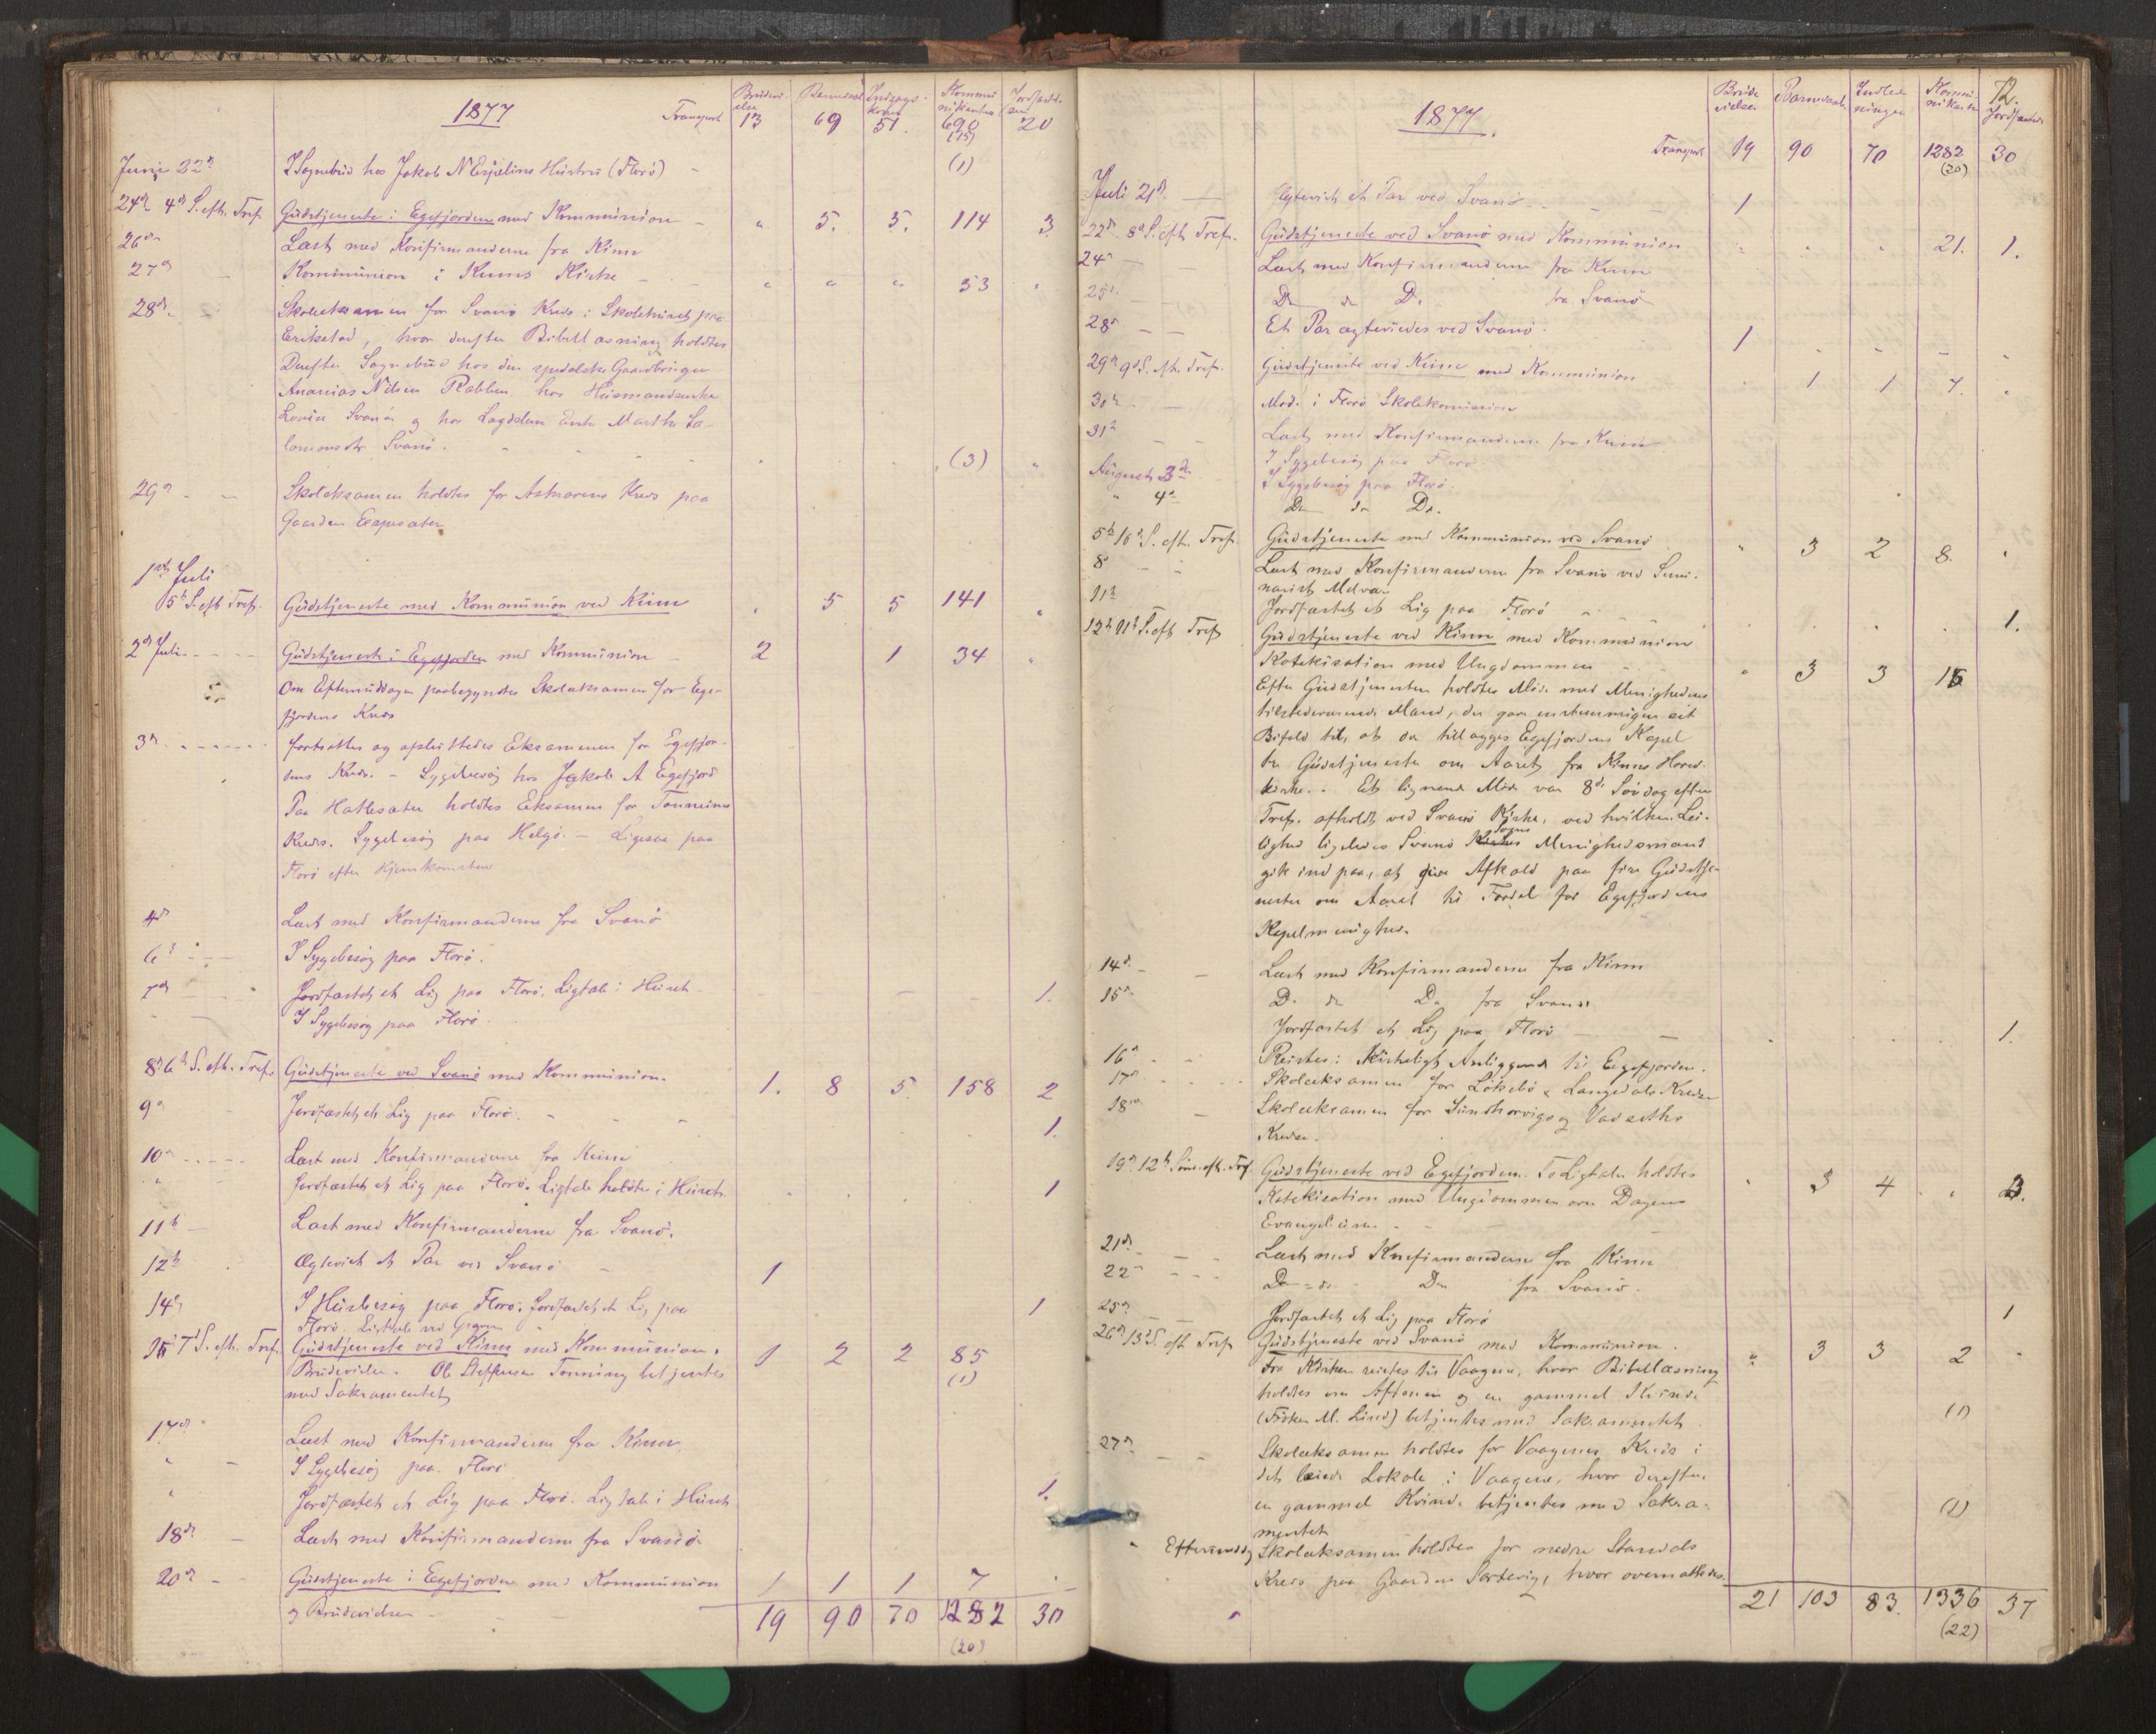 1877
Brudevi-
elser
Barnedaab
Indgangs-
koner
Kommu-
nikanter
Jordfæst-
else
Transport 13 69 51. 690 20
(15)
Juni 22de I Sognebud hos Jakob N Espelins Hustru (Florø) - (1)
24de 4de S. eft. Tref. Gudstjeneste i Egefjorden med Kommunion - " 5. 5. 114 3.
26de Læst med Konfirmanderne fra Kinn
27de Kommunion i Kinns Kirke - " " " 53 "
28de Skoleeksamen for Svanø Kreds i Skolehuset paa
Erikstad, hvor derefter Bibellæsning holdtes
Derefter Sognebud hos den spedalske Gaardbruger
Ananias Nilsen Rabben hos Husmandsenke
Lovise Svanø og hos Lægdslem Enke Marthe Sa-
lomonsdtr. Svanø. (3) "
29de - - Skoleeksamen holdtes for Askvarens Kreds paa
Gaarden
1ste Juli
5te S. eft. Tref. Gudstjeneste med Kommunion ved Kinn " 5 5 141 "
2den Juli - - - Gudstjeneste i Egefjorden med Kommunion - 2 1 34 "
Om Eftermiddagen paabegyndtes Skoleeksamen for Ege-
fjordens Kreds
3de - - - - - fortsattes og afsluttedes Eksamenen for Egefjor-
dens Kreds. - Sygebesøg hos Jakob A Egefjord
Paa Hatlesæter holdtes Eksamen for Tonnings
Kreds. Sygebesøg paa Helgø. - Ligesaa paa
Florø efter Hjemkomsten
4de Læst med Konfirmanderne fra Svanø
6te - - - I Sygebesøg paa Florø.
7de Jordfæstet et Lig paa Florø. Ligtale i Huset - 1.
" I Sygebesøg paa Florø.
8de 6te S. eft. Tref. Gudstjeneste ved Svanø med Kommunion. 1. 8 5. 158 2
9de Jordfæstet et Lig paa Florø. 1.
10de - - - Læst med Konfirmanderne fra Kinn
" Jordfæstet et Lig paa Florø. Ligtale holdtes i Huset. 1
11te - Læst med Konfirmanderne fra Svanø.
12te Ægteviet et Par ved Svanø - 1
14de I Husbesøg paa Florø. Jordfæstet et Lig paa 1
Florø. Ligtale ved Graven
15de 7de S. eft. Tref. Gudstjeneste ved Kinn med Kommunion. 1 2 2 85
Brudevielse. Ole Steffensen Tonning betjentes (1)
med Sakramentet
17de Læst med Konfirmanderne fra Kinn
" - I Sygebesøg paa Florø
" Jordfæstet et Lig paa Florø. Ligtale i Huset 1.
18de - Læst med Konfirmanderne fra Svanø.
20de - Gudstjeneste i Egefjorden med Kommunion 1 1 1 7 -
og Brudevielse - 19 90 70 1282 30
(20)
72.
1877.
Brude
vielser
Barnedaab
Indled
ninger
Kommu-
nikanter
Jordfæstelse
Transport 19 90 70 1282 30
(20)
Juli 21de - Ægteviet et Par ved Svanø - 1
22de 8de S. eft. Tref. Gudstjeneste ved Svanø med Kommunion " " " 21. 1.
24de - Læst med Konfirmanderne fra Kinn
25de Do do Do fra Svanø
28de - - Et Par ægteviedes ved Svanø. 1 - - - -
29de 9de S. eft. Tref. Gudstjeneste ved Kinn med Kommunion " 1 1 7. "
30te - Møde i Florø Skolekommission
31te - - Læst med Konfirmanderne fra Kinn
I Sygebesøg paa Florø
August 3de I Sygebesøg paa Florø.
" 4de Do do Do.
5te 10de S. eft. Tref. Gudstjeneste med Kommunion ved Svanø " 3 2 8. "
8de - - Læst med Konfirmanderne fra Svanø ved Semi-
narist Melvær
11te Jordfæstet et Lig paa Florø 1.
12te 11te S. eft. Tref. Gudstjeneste ved Kinn med Kommunion
Katekisation med Ungdommen " 3 3 16
Efter Gudstjenesten holdtes Møde med Menighedens
tilstedeværende Mænd, der gave enstemmigen sit
Bifald til, at der tillægges Egefjordens Kapel
to Gudstjenester om Aaret fra Kinns Hoved-
kirke. Et lignende Møde var 8de Søndag efter
Tref. afholdt ved Svanø Kirke, ved hvilken Lei-
lighed ligeledes Svanø Sogns Menighedsmænd
gik ind paa, at give Afkald paa fire Gudstje-
nester om Aaret til Fordel for Egefjordens
Kapelmenighed.
14de - - Læst med Konfirmanderne fra Kinn
15de Do do Do fra Svanø
Jordfæstet et Lig paa Florø - - 1.
16de - - Reistes i Kirkeligt Anliggende til Egefjorden.
17de - - Skoleeksamen for Løkebø & Langedals Kredse
18de - Skoleeksamen for Sundhorvigs og Vadseths
Kredse.
19de 12te Sønd. eft. Tref. Gudstjeneste ved Egefjorden. To Ligtaler holdtes " 3 4 " 3.
Katekisation med Ungdommen over Dagens
Evangelium.
21de - - Læst med Konfirmanderne fra Kinn
22de - - - Do - do - Do fra Svanø.
25de - Jordfæstet et Lig paa Florø 1
26de 13de S. eft. Tref. Gudstjeneste ved Svanø med Kommunion. " 3 3 2 -
Fra Kirken reistes til Vaagene, hvor Bibellæsning
holdtes om Aftenen og en gammel Kvinde
(Frøken M. Lind) betjentes med Sakramentet (1)
27de - - Skoleeksamen holdtes for Vaagenes Kreds i
det leiede Lokale i Vaagene, hvor derefter
en gammel Kvinde betjentes med Sakra- (1)
mentet
" Eftermiddag Skoleeksamen holdtes for nedre Standals
Kreds paa Gaarden Sørtevig, hvor overnattedes.
21 103 83. 1336 37
(22)